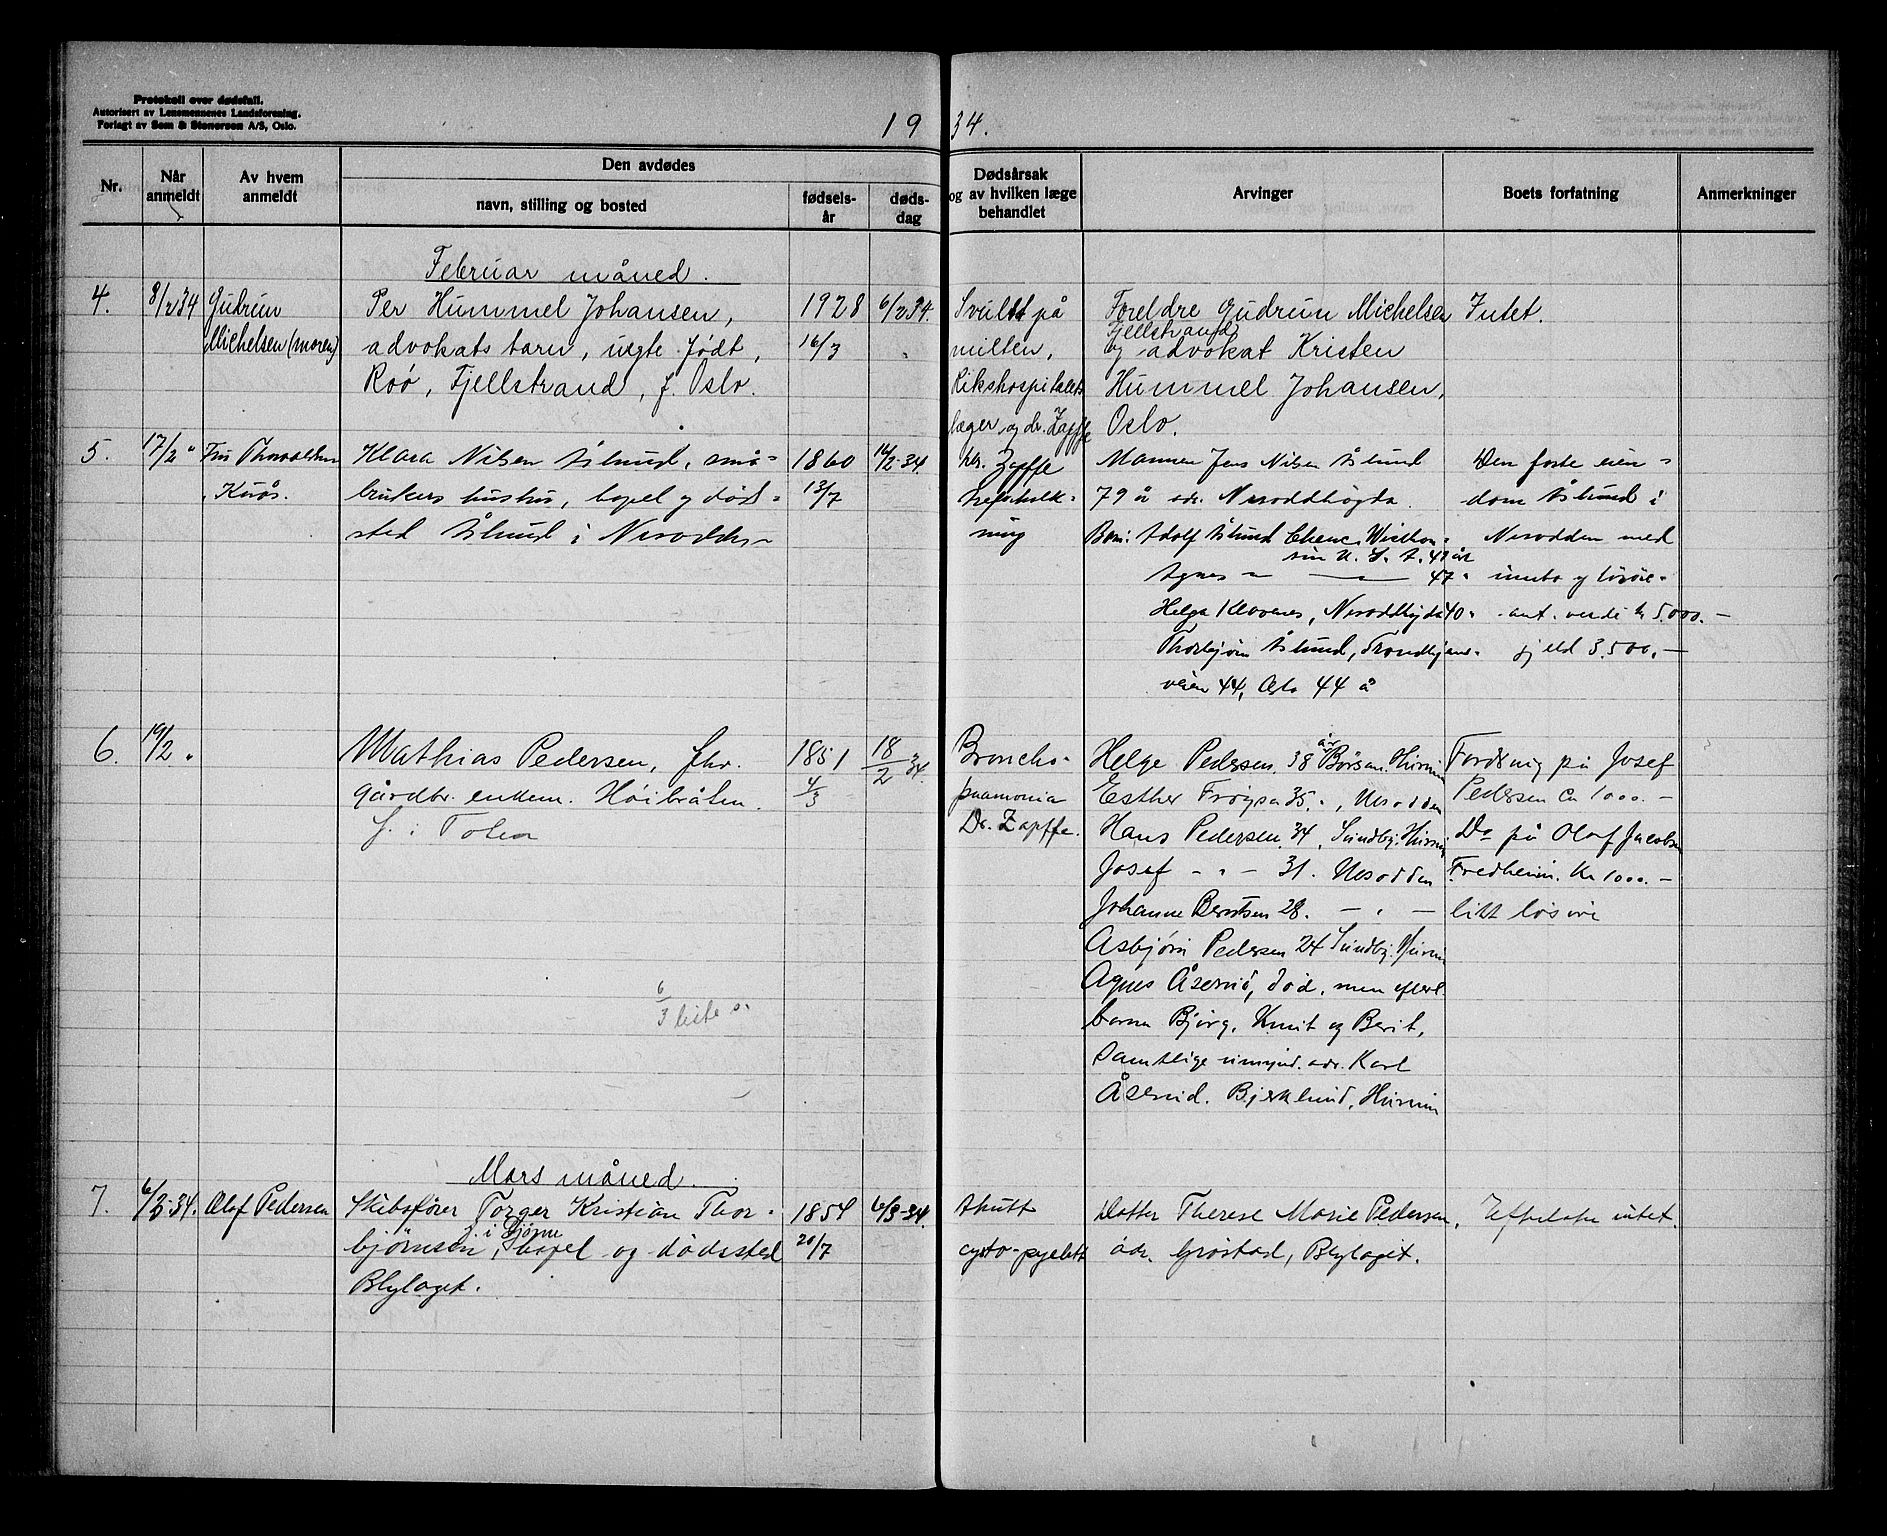 Protokoll over dødsfall.
Autorisert av Lensmennenes Landsforening.
Forlagt av Sem & Stenersen A/S, Oslo.
19 34.
Nr.
Når anmeldt
Av hvem anmeldt
Den avdødes
navn, stilling og bosted
fødsels-år
døds-dag
Dødsårsak og av hvilken læge behandlet
Arvinger
Boets forfatning
Anmerkninger
Februar måned.
4.
8/2 34
Gudrun
Michelsen (moren)
Per Hummel Johansen,
advokats barn, uegte født,
Roø, Fjellstrand, f. Oslo.
1928
16/3
6/2 34.
Svulst på
milten,
Rikshospitalets
læger og dr. Zapffe
Foreldre Gudrun Michelsen
Fjellstrand
og advokat Kristen
Hummel Johansen,
Oslo.
Intet.
5.
17/2 "
Fru Thorvaldsen
Klara Nilsen Åslund, små-
brukers hustru, bopel og død-
sted Åslund i Nesodden
1860
13/7
14/2-34.
Dr. Zapffe
ning
Mannen Jens Nilsen Åslund
79 år adr. Nesoddhøgda.
Barn: Adolf Åslund
U. S. A. 49 år
Agnes - — 47 "
Helga Klovenes, Nesoddhøgda 40 "
Thorbjørn Åslund, Trondhjems-
veien 44, Oslo 44 å
Den faste eien-
dom Åslund i
Nesodden med
innbo og løsøre
ant. verdi kr 5.000.-
gjeld 3.500.-
6.
19/2 "
Mathias Pedersen, fhv.
gårdbr. enkem. Høibråten.
f. i Toten
6/3
1851
4/3
18/2 34.
Broncho-
pnæmonia
Dr. Zapffe.
Helge Pedersen. 38 år Hurum
Esther Frøysa 35. ", Nesodden
Hans Pedersen. 34, Sundby. Hurum
Josef - " - 31. Nesodden
Johanne Berntsen 28. - " -
Asbjørn Pedersen 24 Sundby. Hurum
Agnes Åserud, død, men efterl.
barna Bjørg, Knut og Berit,
samtlige umynd. adr. Karl
Åserud. Bjerklund, Hurum
Fordring på Josef
Pedersen Ca 1000.-
Do på Olaf Jacobsen
Fredheim. Kr 1000.-
litt løsøre
Mars måned.
7.
6/3-34.
Olaf Pedersen
Skibsfører Torger Kristian Thor-
f. i Tjøme
bjørnsen, bopel og dødssted
Blylaget.
1854
20/7
6/3-34.
Akutt
cysto-pyelitt
Datter Therese Marie Pedersen,
adr. Grøstad, Blylaget.
Efterlater intet.